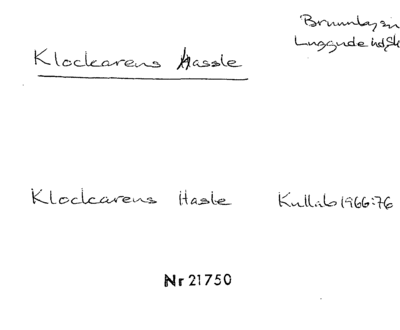 Brunnby sn
Luggude hd, Sk
Klockarens Hassle
Klockarens Hasle Kullab 1966:76
Nr 21750